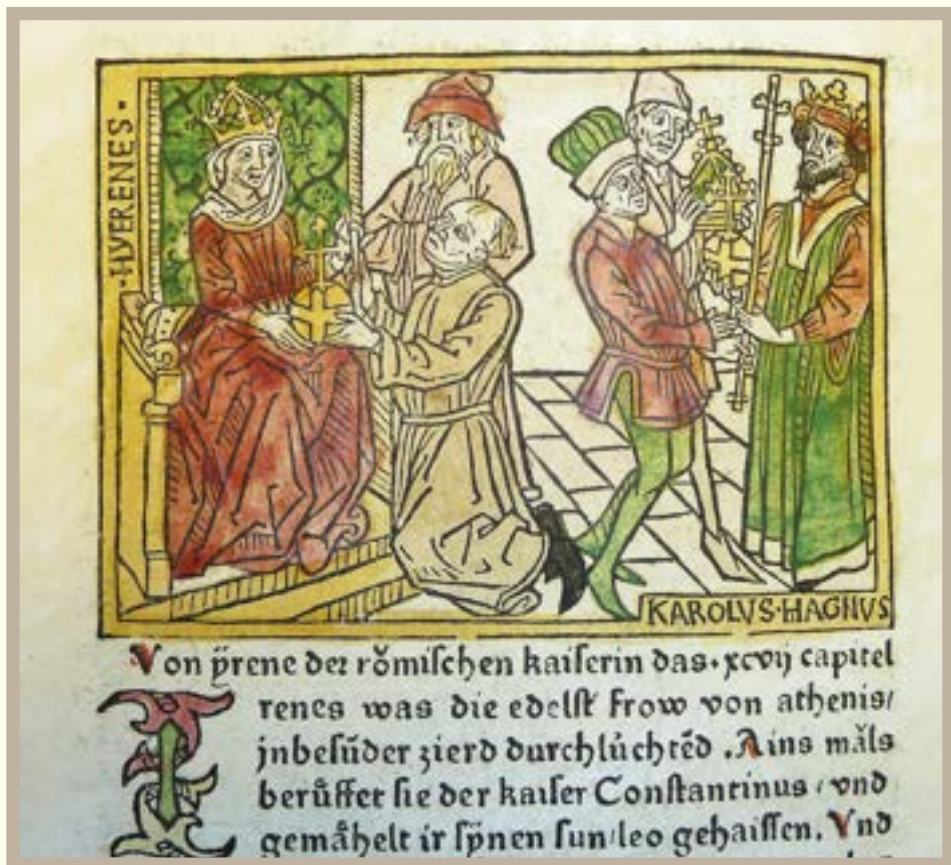 ·HVERENES·
KAROLVS·HAGNVS
Von ÿrene der rŏmiſchen kaiſerin das·xcvij capitel
Irenes was die edelſt frow von athenis/
jnbeſūder zierd durchlúchtēd .Ains mǎls
berůffet ſie der kaiſer Conſtantinus / vnd
gemåhelt ir ſÿnen ſun/leo gehaiſſen. Vnd